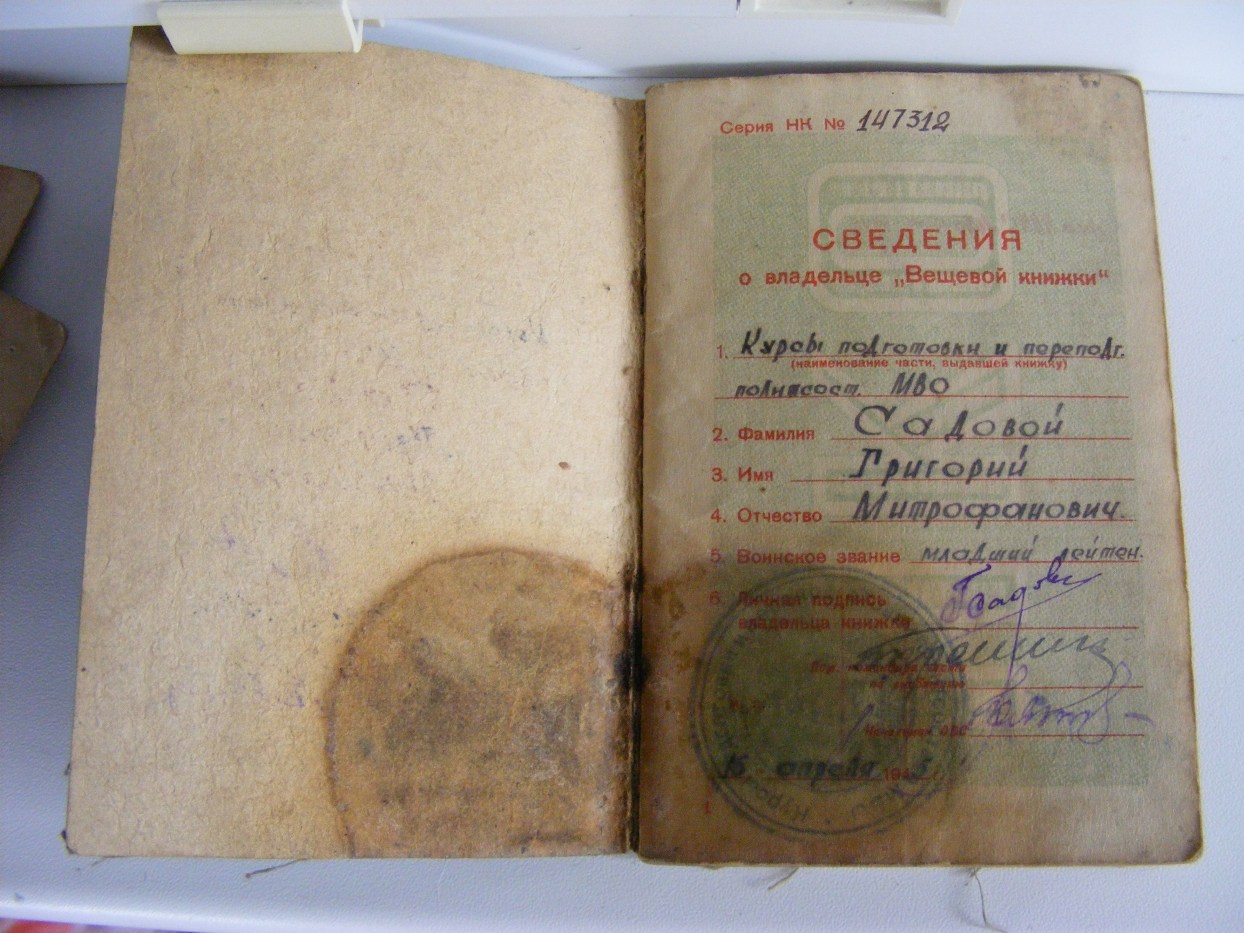 Серия НК № 147312
СВЕДЕНИЯ
о владельце „Вещевой книжки“
1. Курсы подготовки и переподг.
(наименование части, выдавшей книжку)
политсост. МВО
2. Фамилия Садовой
3. Имя Григорий
4. Отчество Митрофанович.
5. Воинское звание младший лейтен.
6. Личная подпись Гсадовой
владельца книжки
Начальник ОВС
15 апреля 1943 г.
1